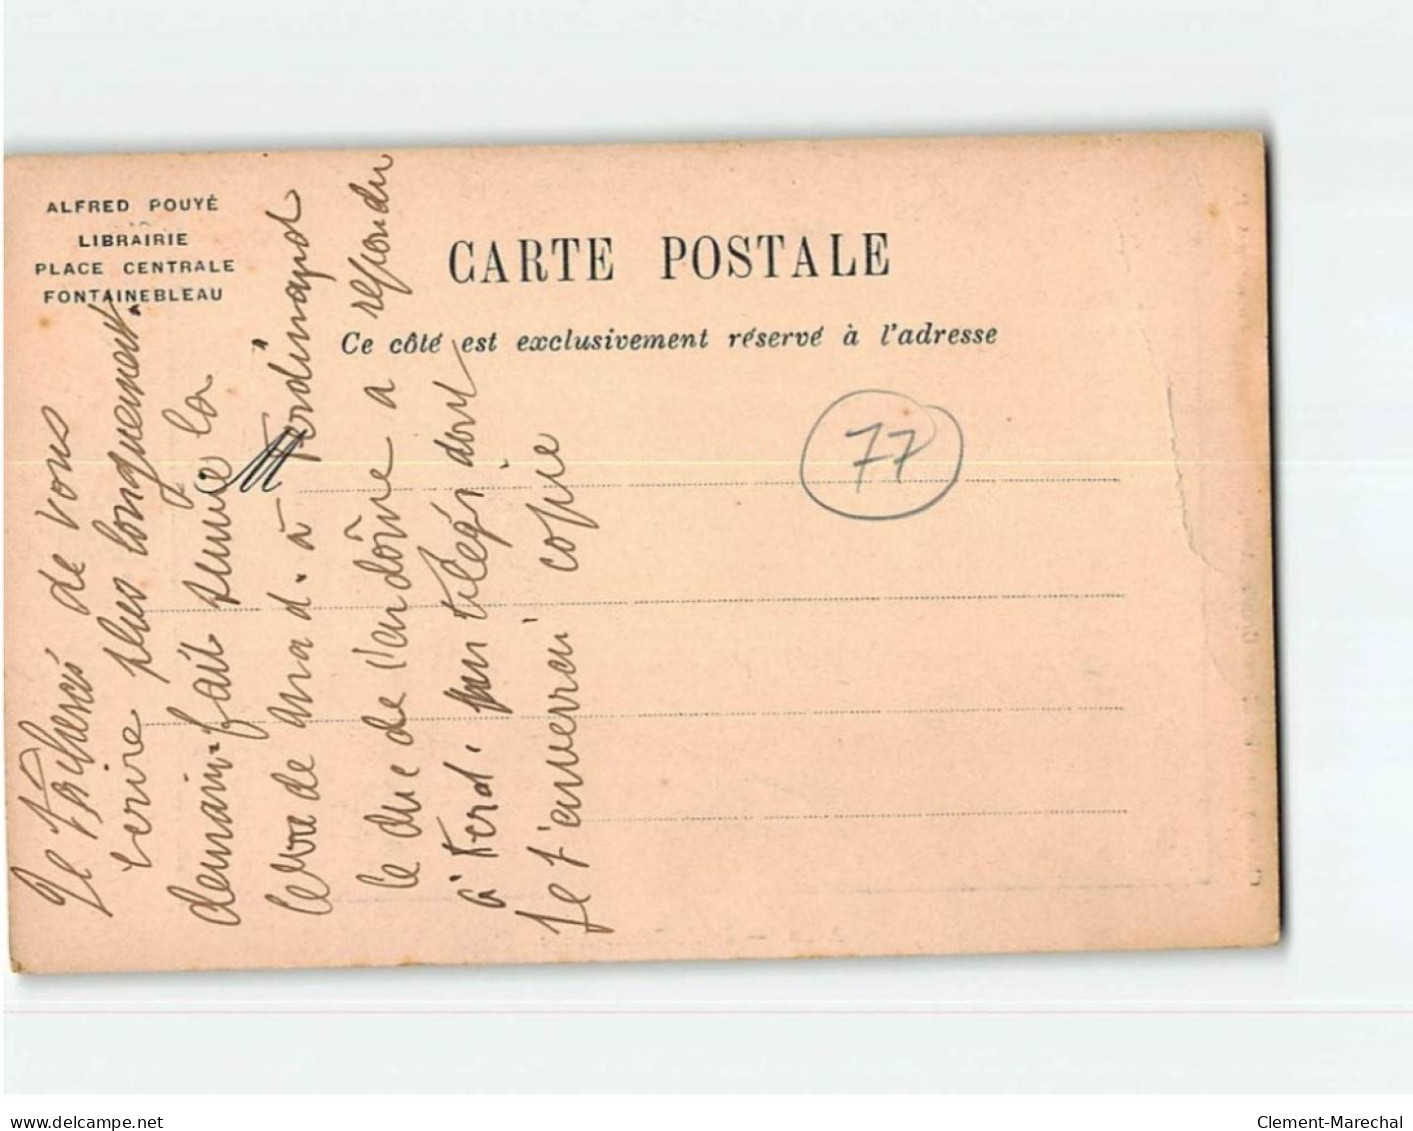 ALFRED POUYÉ
LIBRAIRIE
PLACE CENTRALE
FONTAINEBLEAU
CARTE POSTALE
Ce côté est exclusivement réservé à l'adresse
M
77
Je de vous
plus longuement
demain. fait suivre la
de mad. à Ferdinand
le duc de a répondu
à Ferd. par télégr dont
Je t'enverrai copie
www.delcampe.net
Clement-Marechal